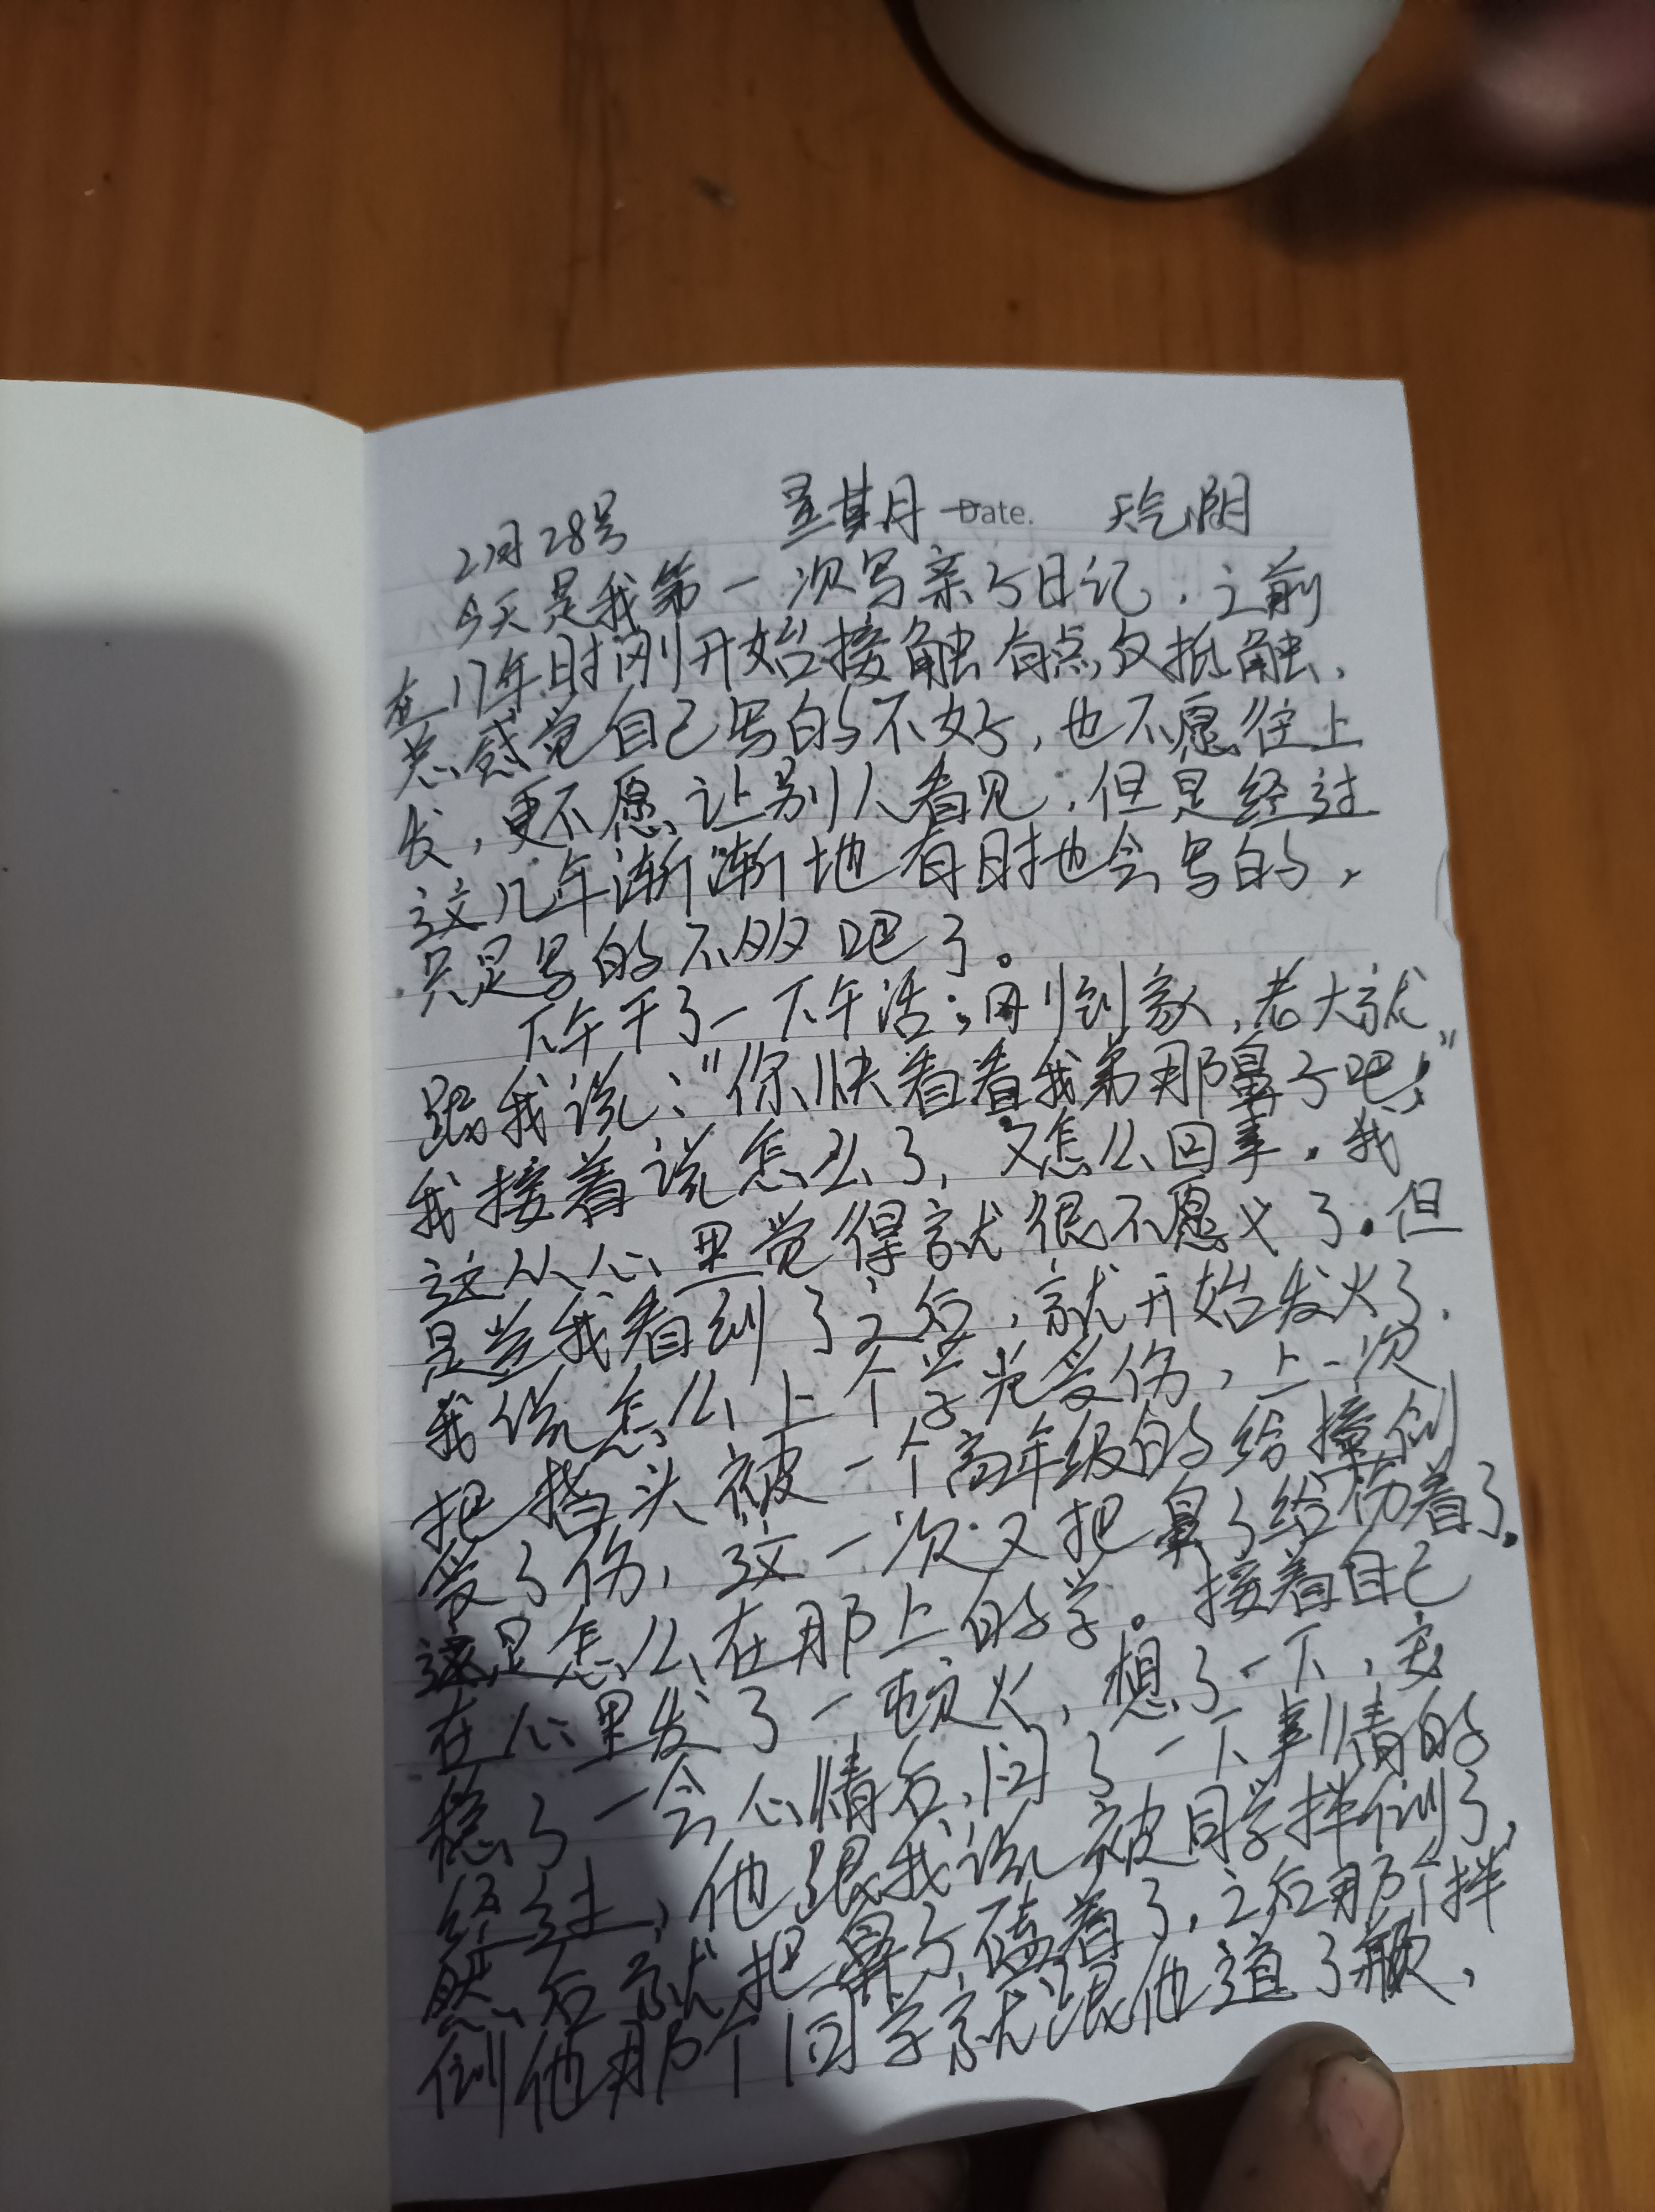 2月28号 星期一 Date. 天气阴
今天是我第一次写亲子日记，之前
在17年时刚开始接触有点反抵触，
总感觉自己写的不好，也不愿往上
发，更不愿让别人看见，但是经过
这几年渐渐地有时也会写的，
只是写的不多吧了。
下午干了一下午活；刚到家，老大就
跟我说：“你快看看我弟那鼻子吧！”
我接着说怎么了，又怎么回事。我
这从心里觉得就很不愿义了。但
是当我看到了之后，就开始发火了。
我说怎么上个学光受伤，上一次
把指头被一个高年级的给撞倒
受了伤，这一次又把鼻子给伤着了。
这是怎么在那上的学。接着自己
在心里发了一顿火，想了一下，安
稳了一会心情后，问了一下事情的
经过，他跟我说被同学拌倒了，
然后就把鼻子磕着了，之后那个拌
倒他那个同学就跟他道了歉，